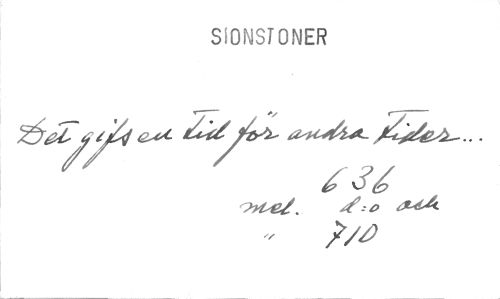 SIONSTONER
Det gifs en tid för andra tider...
636
mel. d:o och
" 710